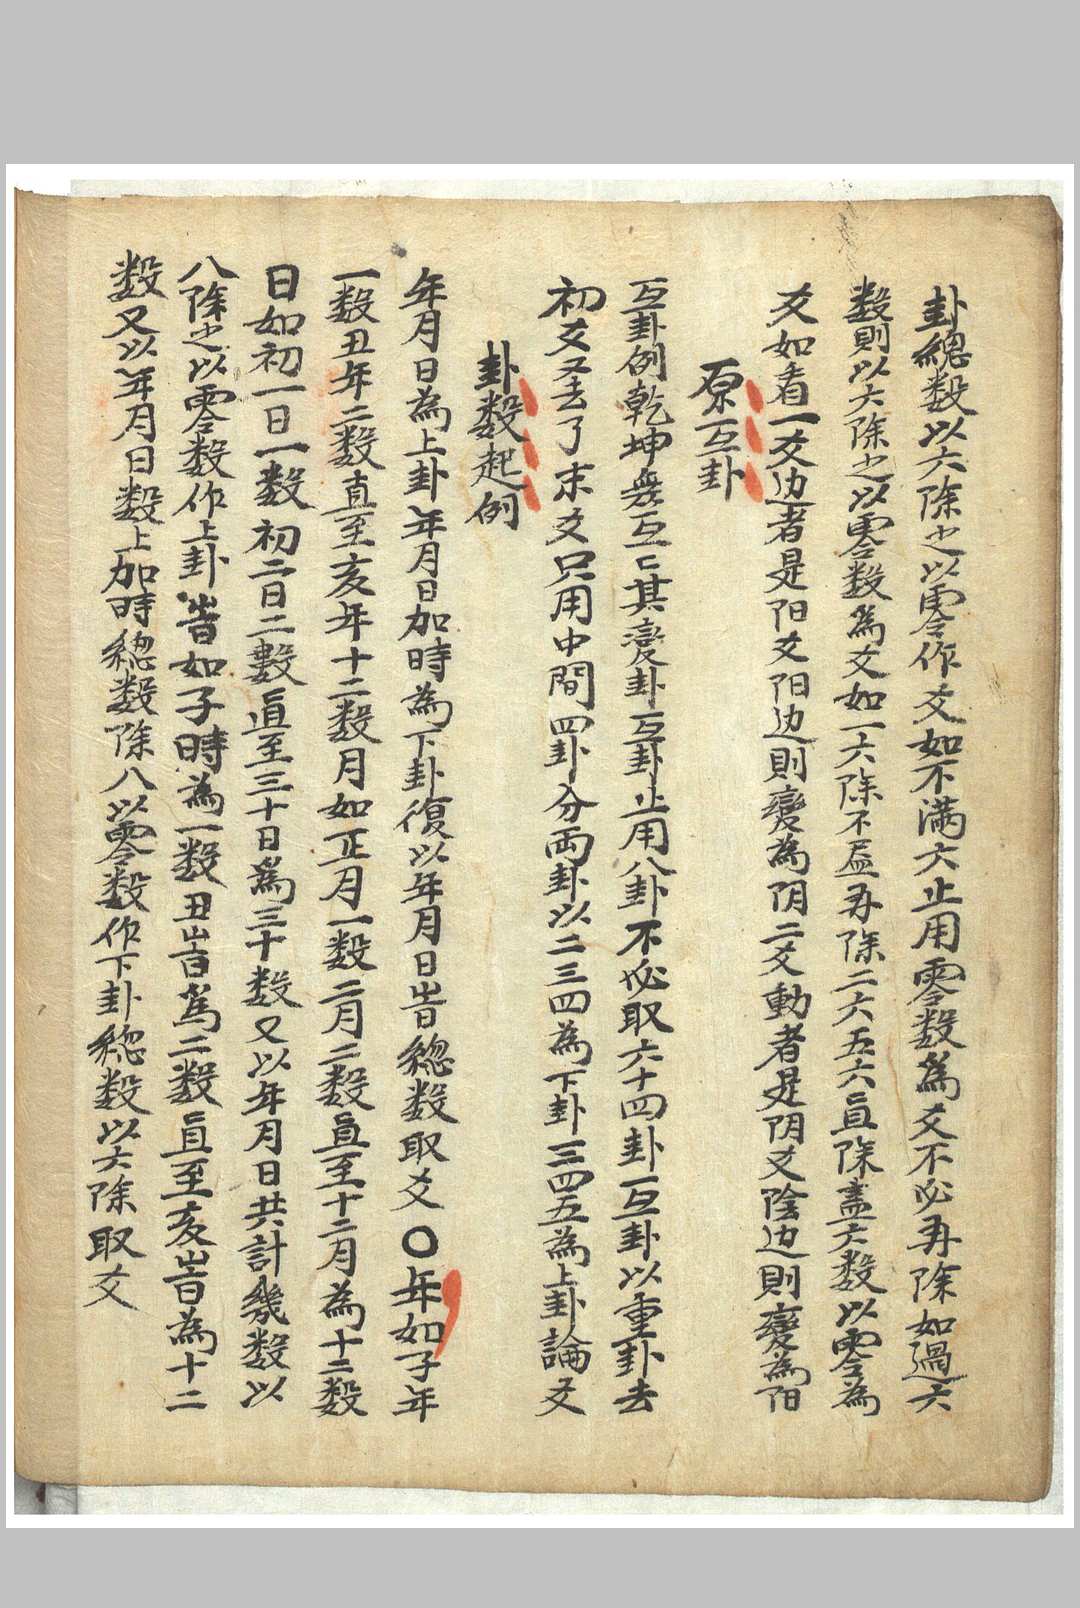 卦緫数以六除之以零作爻如不满六止用零数為爻不必再除如過六
数則以六除之以零数為爻如一六除不盡再除二六五六直除盡六数以零為
爻如看一爻边者是阳爻阳边則變為阴二爻動者是阴爻陰边則變為阳
原互卦
互卦例乾坤無互匕其变卦互卦止用八卦不必取六十四卦互卦以重卦去
初爻又去了末爻只用中間四卦分両卦以二三四為下卦三四五為上卦論爻
卦数起例
年月日為上卦年月日加時為下卦復以年月日旹緫数取爻〇年如子年
一数丑年二数直至亥年十二数月如正月一数二月二数直至十二月為十二数
日如初一日一数初二日二數直至三十日為三十数又以年月日共計幾数以
八除之以零数作上卦旹如子時為一数丑旹為二数直至亥旹為十二
数又以年月日数上加時緫数除八以零数作下卦緫数以六除取爻